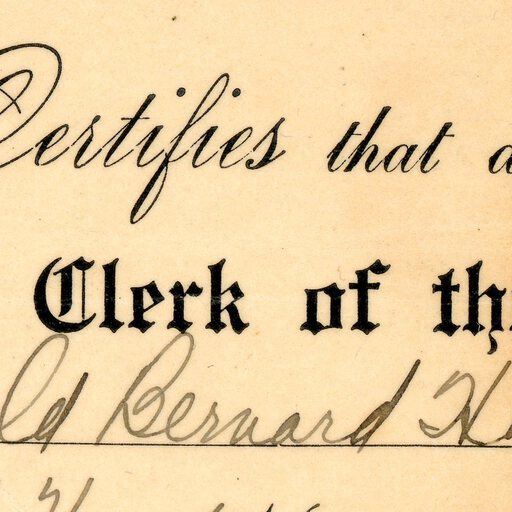 Certifies that a
Clerk of th
ld Bernard H